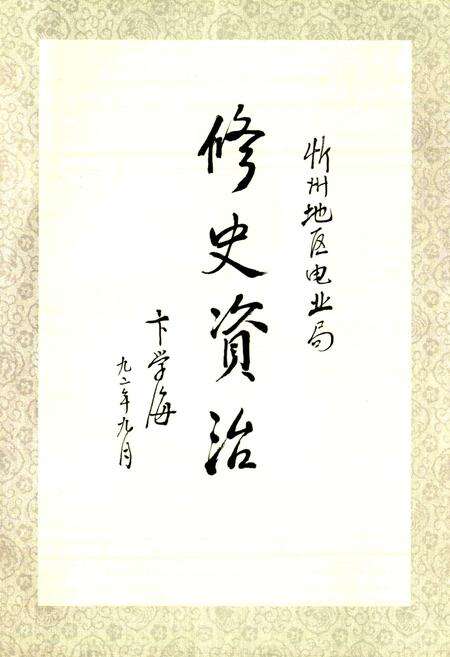 忻州地区电业局
修史资治
卞学海
九二年九月